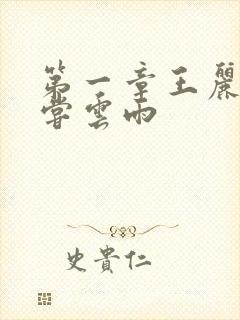 第一章王麗
嘗雲雨
史貴仁